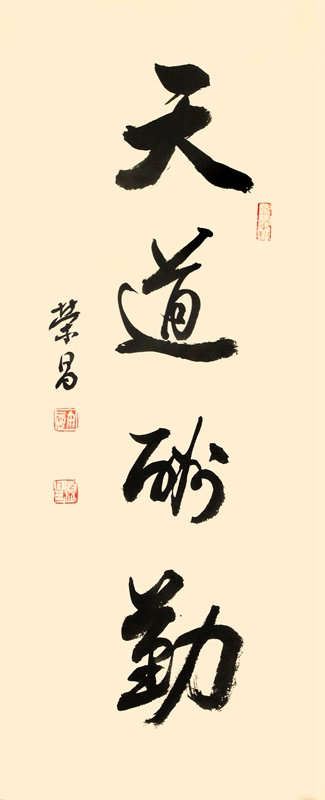 天道酬勤
榮昌